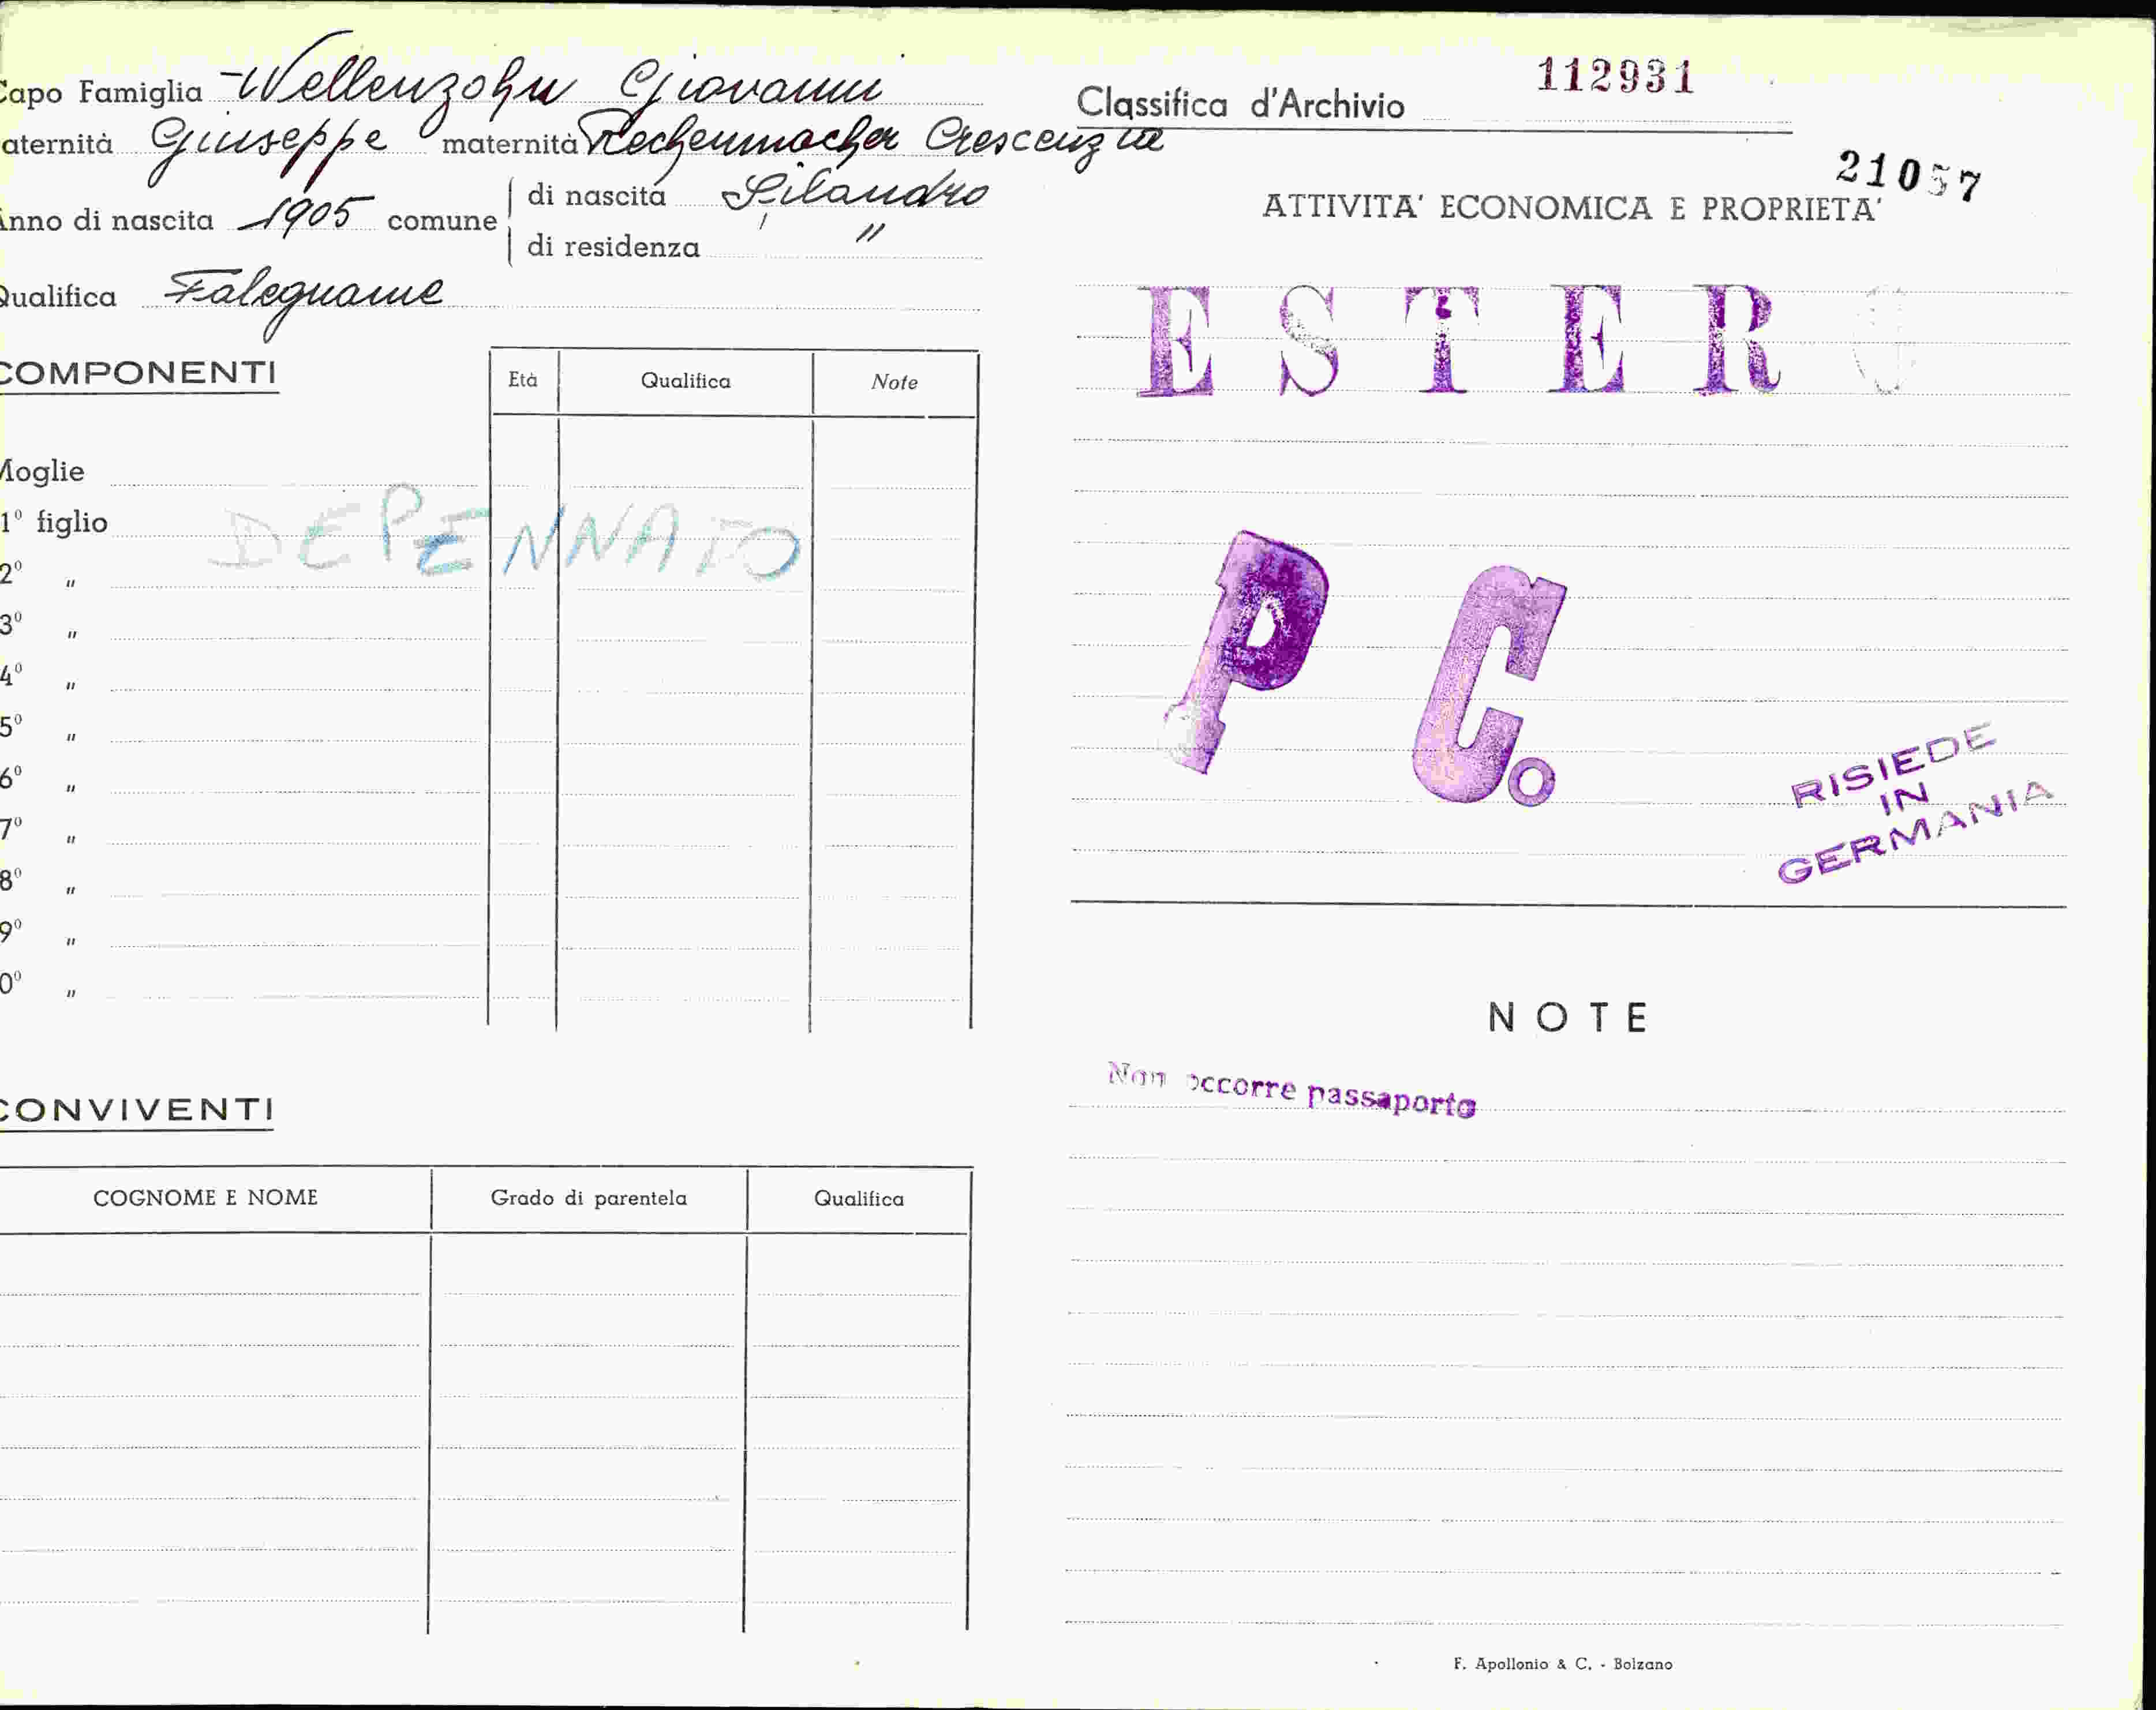 Capo Famiglia Wellenzohn Giovanni
aternità Giuseppe maternità Rechenmacher Crescenzia
Anno di nascita 1905 comune di nascita Silandro
di residenza "
Qualifica Falegname
COMPONENTI
Età Qualifica Note
Moglie
1º figlio
DEPENNATO
2º "
3º "
4º "
5º "
6º "
7º "
8º "
9º "
0º "
CONVIVENTI
COGNOME E NOME Grado di parentela Qualifica
Classifica d'Archivio 112931
21057
ATTIVITA' ECONOMICA E PROPRIETA'
ESTERO
P C.
RISIEDE
IN
GERMANIA
NOTE
Non occorre passaporto
F. Apollonio & C. - Bolzano